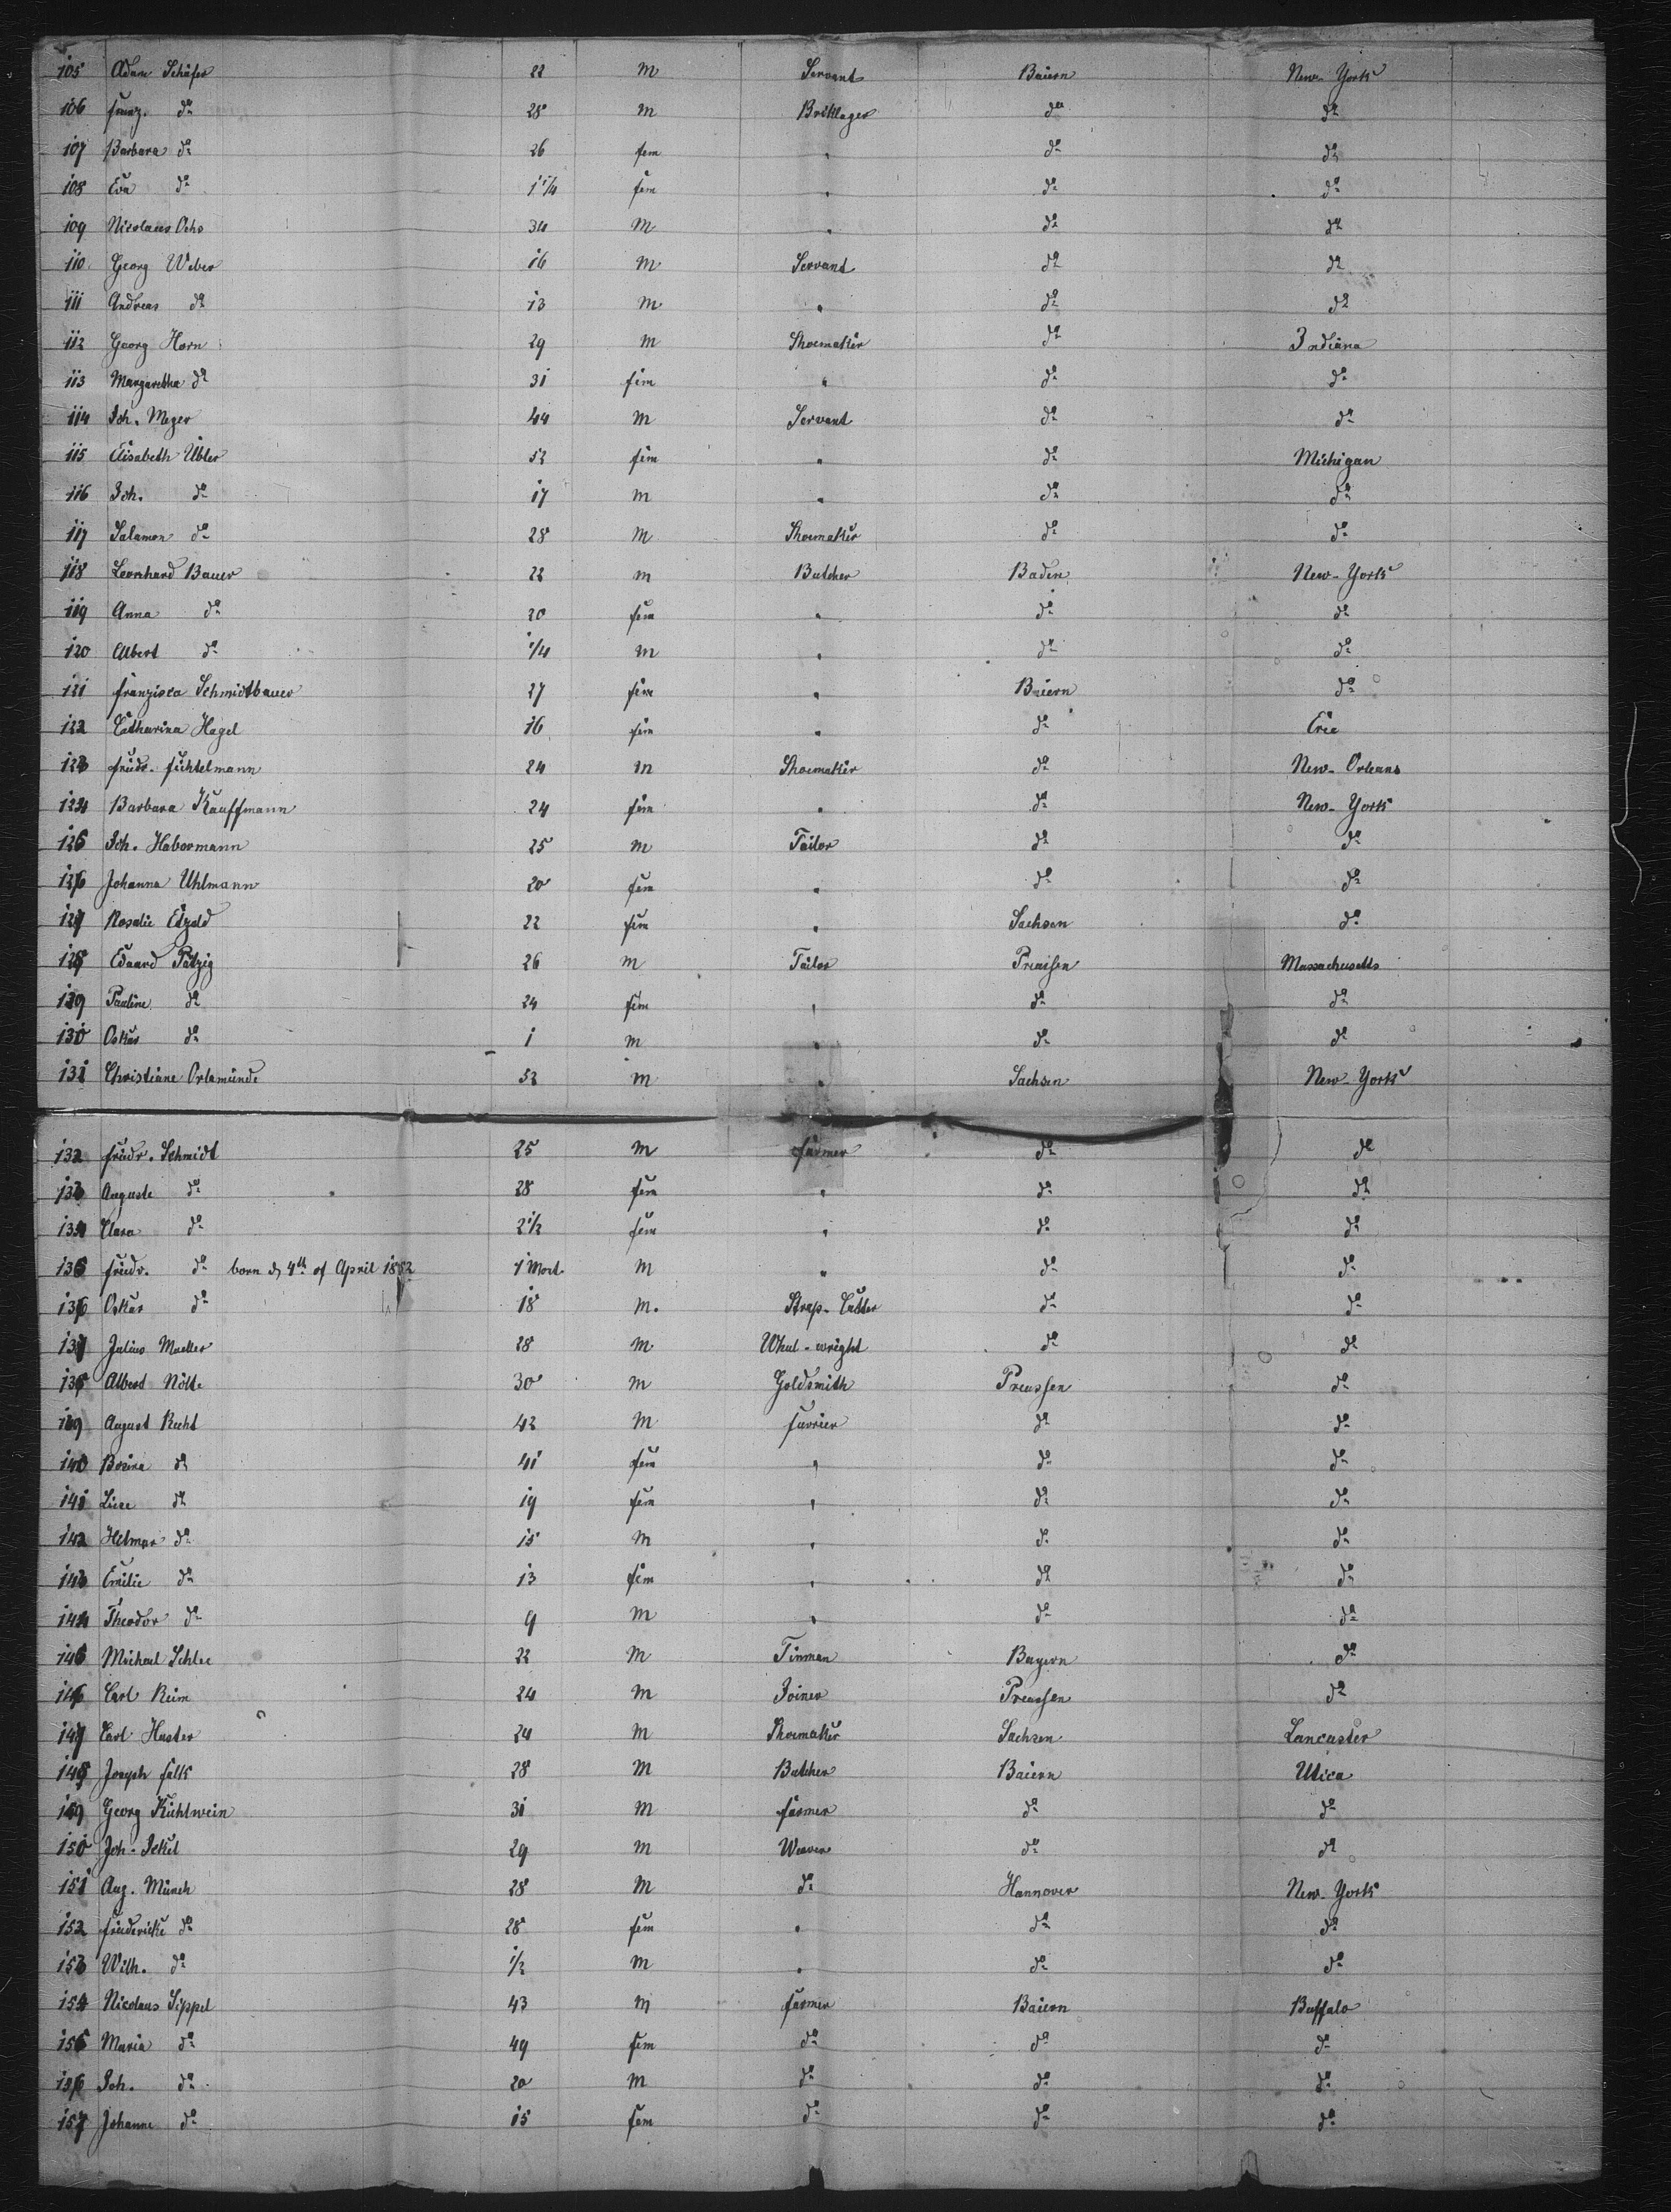 105 Adam Schäfer 22 m Servant Baiern New-York
106 Franz. do 28 m Briklager do do
107 Barbara do 26 fem " do do
108 Eva do 1 1/4 fem " do do
109 Nicolaus Ochs 34 m " do do
110 Georg Weber 16 m Servant do do
111 Andreas do 13 m " do do
112 Georg Horn 29 m Shoemaker do Indiana
113 Margaretha do 31 fem " do do
114 Joh. Meyer 44 m Servant do do
115 Elisabeth Übler 52 fem " do Michigan
116 Joh. do 17 m " do do
117 Salamon do 28 m Shoemaker do do
118 Leonhard Bauer 22 m Butcher Baden New-York
119 Anna do 20 fem " do do
120 Albert do 1/4 m " do do
121 Franzisca Schmidtbauer 27 fem " Baiern do
122 Catharina Hagel 16 fem " do Erie
123 Friedr. Fichtelmann 24 m Shoemaker do New-Orleans
124 Barbara Kauffmann 24 fem " do New-York
125 Joh. Habermann 25 m Tailor do do
126 Johanna Uhlmann 20 fem " do do
127 Rosalie Etzold 22 fem " Sachsen do
128 Eduard Patzig 26 m Tailor Preussen Massachusetts
129 Pauline do 24 fem " do do
130 Oskar do 1 m " do do
131 Christiane Orlamünde 52 m " Sachsen New-York
132 Friedr. Schmidt 25 m Farmer do do
133 Auguste do 28 fem " do do
134 Clara do 2 1/2 fem " do do
135 Friedr. do born d 4th of April 1852 1 Mort. m " do do
136 Oskar do 18 m. Strap-Cutter do do
137 Julius Mueller 28 m Wheel-wright do do
138 Albert Nölte 30 m Goldsmith Preussen do
139 August Recht 42 m Furrier do do
140 Rosina do 41 fem " do do
141 Liese do 19 fem " do do
142 Helmar do 15 m " do do
143 Emilie do 13 fem " do do
144 Theodor do 9 m " do do
145 Michael Schlee 22 m Tinman Bayern do
146 Carl Reim 24 m Joiner Preussen do
147 Carl Huster 24 m Shoemaker Sachsen Lancaster
148 Joseph Falk 28 m Butcher Baiern Utica
149 Georg Kühlwein 31 m Farmer do do
150 Joh. Jekel 29 m Weaver do do
151 Aug. Münch 28 m do Hannover New-York
152 Friedericke do 28 fem " do do
153 Wilh. do 1/2 m " do do
154 Nicolaus Sippel 43 m Farmer Baiern Buffalo
155 Maria do 49 fem do do do
156 Joh. do 20 m do do do
157 Johanne do 15 fem do do do